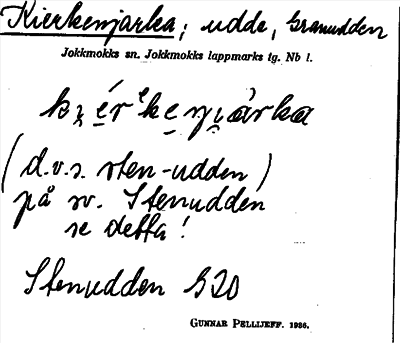 Kierkenjarka, udde, Granudden
Jokkmokks sn. Jokkmokks lappmarks tg. Nb l.
(d.v.s. sten-udden)
på sv. Stenudden
se detta!
Stenudden G20
GUNNAR PELLIJEFF. 1936.